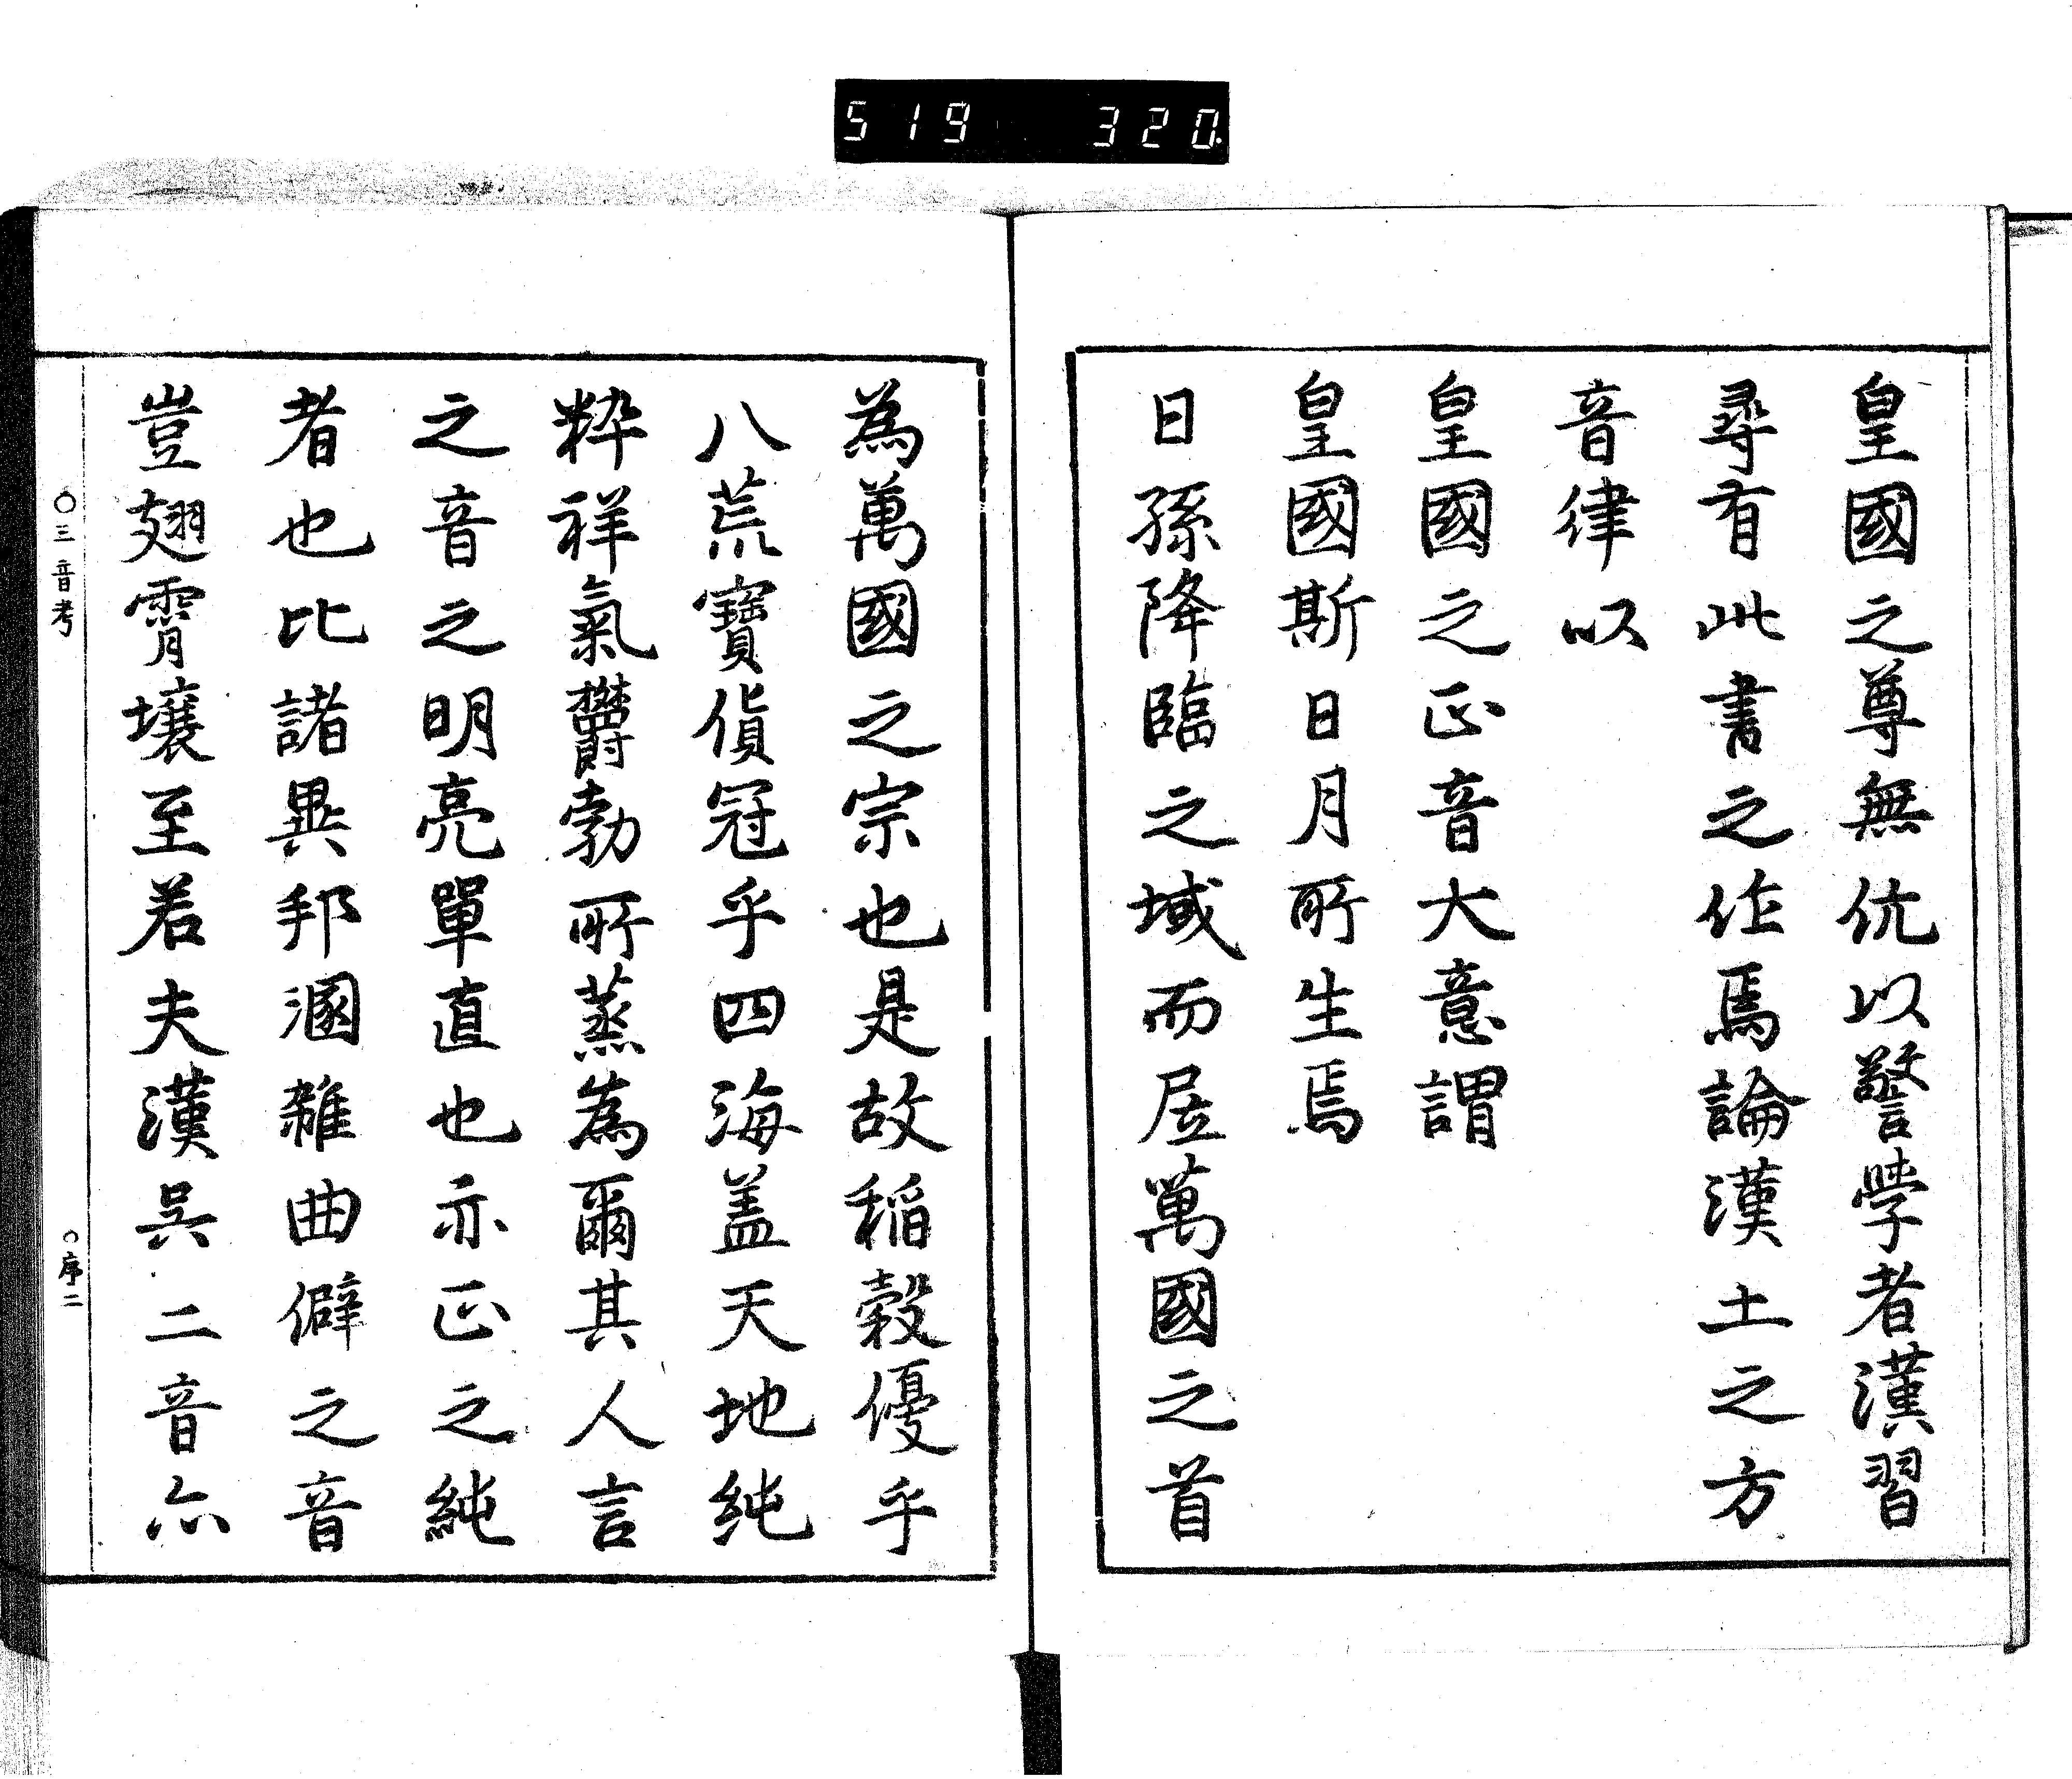 519 320
皇國之尊無伉以警學者漢習
尋有此書之作焉論漢土之方
音律以
皇國之正音大意謂
皇國斯日月所生焉
日孫降臨之域而居萬國之首
為萬國之宗也是故稲穀優乎
八荒寶貨冠乎四海盖天地純
粋祥氣欝勃所蒸為爾其人言
之音之明亮單直也亦正之純
者也比諸異邦溷雜曲僻之音
豈翅霄壤至若夫漢呉二音亦
〇三音考
〇序二